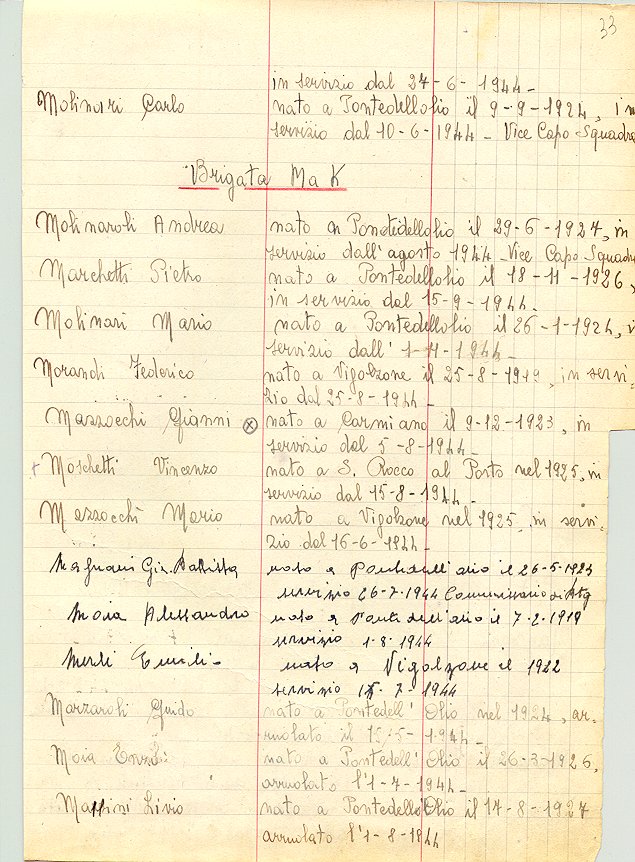 33
in servizio dal 27-6-1944-
Molinari Carlo nato a Pontedellolio il 9-9-1924, in
servizio dal 10-6-1944- Vice Capo Squadra
Brigata Ma K
Molinaroli Andrea nato a Pontedellolio il 29-6-1927, in
servizio dall'agosto 1944- Vice Capo Squadra
Marchetti Pietro nato a Pontedellolio il 18-11-1926,
in servizio dal 15-9-1944-
Molinari Mario nato a Pontedellolio il 26-1-1924, i
servizio dall' 1-11-1944-
Morandi Federico nato a Vigolzone il 25-8-1919, in servi-
zio dal 25-8-1944-
Mazzocchi Gianni nato a Carmiano il 9-12-1923, in
servizio dal 5-8-1944-
Moschetti Vincenzo nato a S. Rocco al Porto nel 1925, in
servizio dal 15-8-1944-
Mazzocchi Mario nato a Vigolzone nel 1925, in servi-
zio dal 16-6-1944-
Magnani Gio. Battista nato a Pontedell'olio il 26-5-1923
servizio 26-7-1944 Commissario di
Moia Alessandro nato a Pontedell'olio il 7-2-1919
servizio 1-8-1944
Merli Emili- nato a Vigolzone il 1922
servizio 15-7-1944
Marzaroli Guido nato a Pontedell'Olio nel 1924, ar-
ruolato il 15-5-1944-
Moia nato a Pontedell'Olio il 26-3-1926,
arruolato l'1-7-1944-
Massini Livio nato a Pontedell'Olio il 17-8-1927
arruolato l'1-8-1944